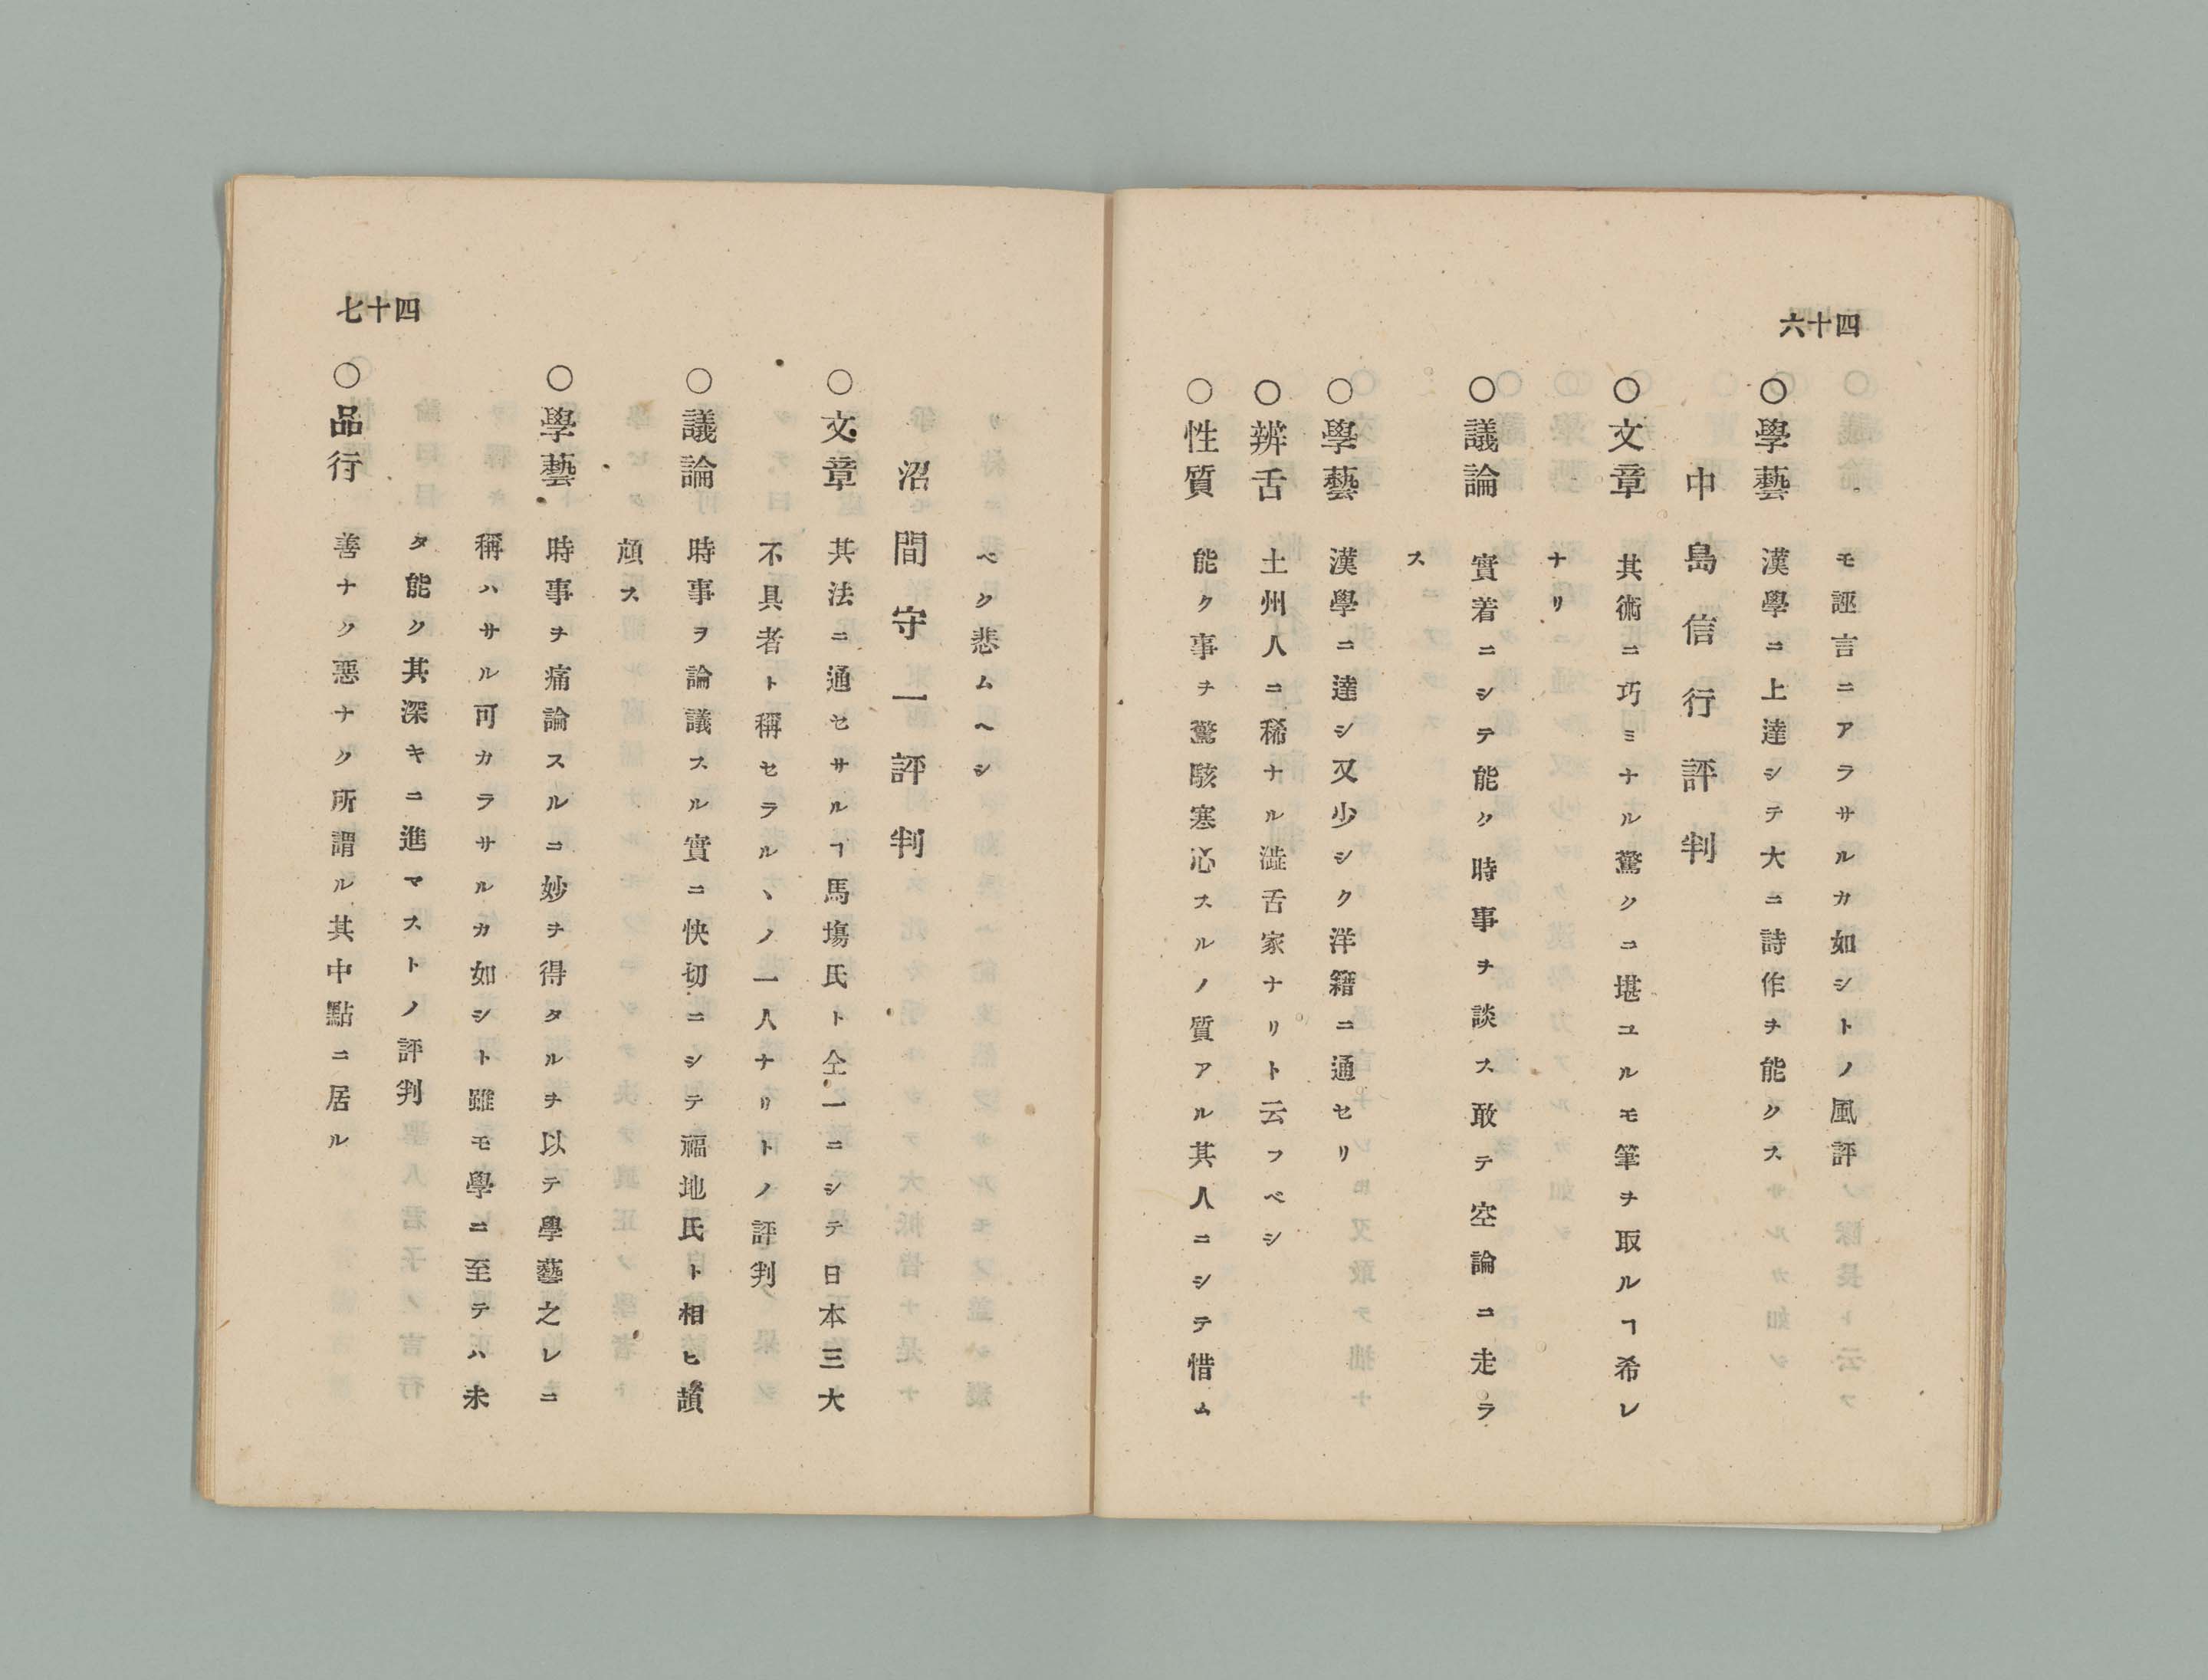 四十六
モ誣言ニアラサルカ如シトノ風評
○學藝 漢學ニ上達シテ大ニ詩作ヲ能クス
中島信行評判
○文章 其術ニ巧ミナル驚クニ堪ユルモ筆ヲ取ルヿ希レ
ナリ
○議論 實着ニシテ能ク時事ヲ談ス敢テ空論ニ走ラ
ス
○學藝 漢學ニ達シ又少シク洋籍ニ通セリ
○辨舌 土州人ニ稀ナル澁舌家ナリト云フベシ
○性質 能ク事ヲ驚駭寒心スルノ質アル其人ニシテ惜ム
四十七
ベク悲ムヘシ
沼間守一評判
○文章 其法ニ通セサルヿ馬塲氏ト仝一ニシテ日本三大
不具者ト稱セラルヽノ一人ナリトノ評判
○議論 時事ヲ論議スル實ニ快切ニシテ福地氏ト相ヒ頡
頏ス
○學藝 時事ヲ痛論スルニ妙ヲ得タルヲ以テ學藝之レニ
稱ハサル可カラサルカ如シト雖モ學ニ至テハ未
タ能ク其深キニ進マストノ評判
○品行 善ナク悪ナク所謂ル其中點ニ居ル